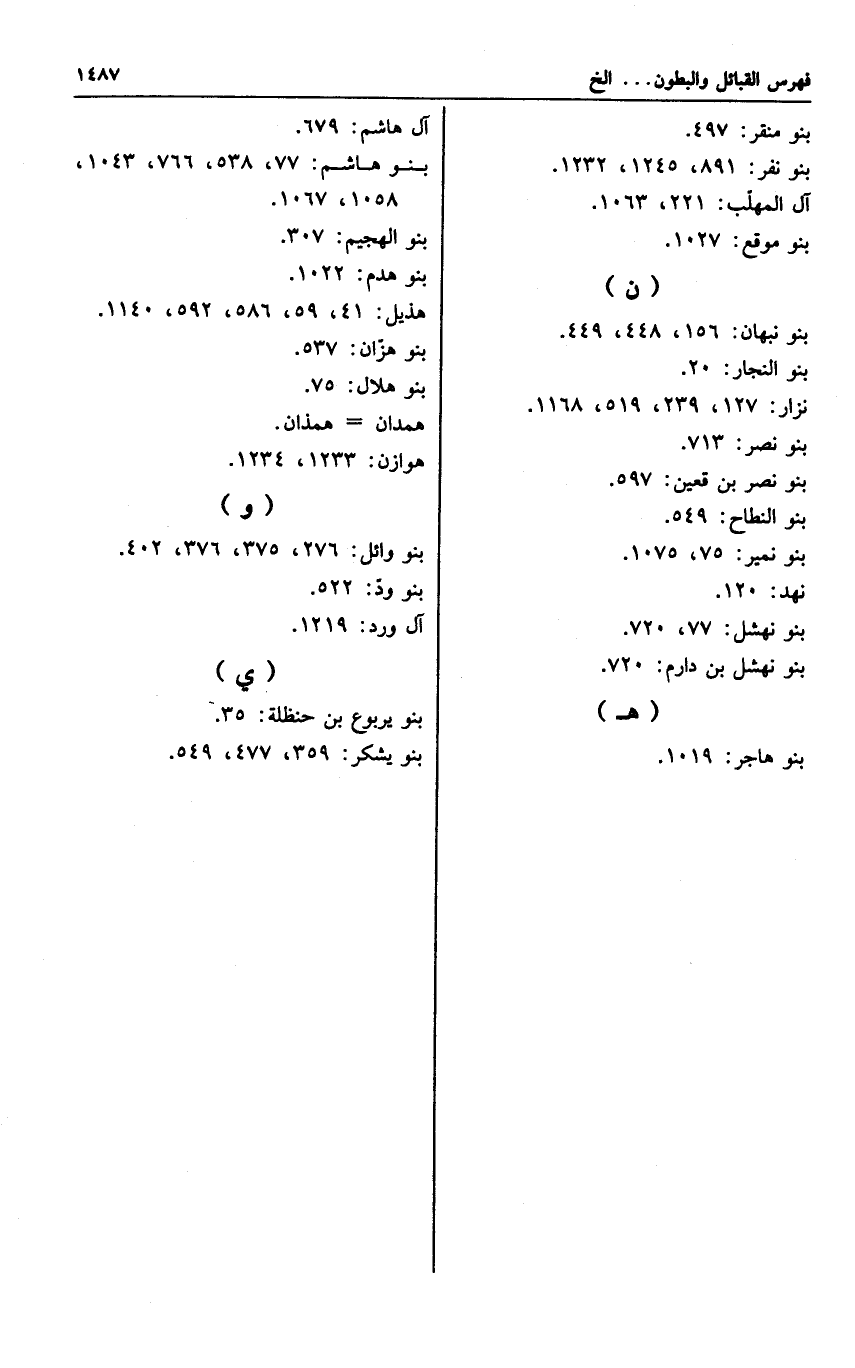 فهرس القبائل والبطون... الخ ١٤٨٧
بنو منقر: ٤٩٧.
بنو نفر: ٨٩١، ١٢٤٥، ١٢٣٢.
آل المهلّب: ٢٢١، ١٠٦٣.
بنو موقع: ١٠٢٧.
( ن )
بنو نبهان: ١٥٦، ٤٤٨، ٤٤٩.
بنو النجار: ٢٠.
نزار: ١٢٧، ٢٣٩، ٥١٩، ١١٦٨.
بنو نصر: ٧١٣.
بنو نصر بن قعين: ٥٩٧.
بنو النطاح: ٥٤٩.
بنو نمير: ٧٥، ١٠٧٥.
نهد: ١٢٠.
بنو نهشل: ٧٧، ٧٢٠.
بنو نهشل بن دارم: ٧٢٠.
( هـ )
بنو هاجر: ١٠١٩.
آل هاشم: ٦٧٩.
بنو هاشم: ٧٧، ٥٣٨، ٧٦٦، ١٠٤٣،
١٠٥٨، ١٠٦٧.
بنو الهجيم: ٣٠٧.
بنو هدم: ١٠٢٢.
هذيل: ٤١، ٥٩، ٥٨٦، ٥٩٢، ١١٤٠.
بنو هزّان: ٥٣٧.
بنو هلال: ٧٥.
همدان = همذان.
هوازن: ١٢٣٣، ١٢٣٤.
( و )
بنو وائل: ٢٧٦، ٣٧٥، ٣٧٦، ٤٠٢.
بنو ودّ: ٥٢٢.
آل ورد: ١٢١٩.
( ي )
بنو يربوع بن حنظلة: ٣٥.
بنو يشكر: ٣٥٩، ٤٧٧، ٥٤٩.